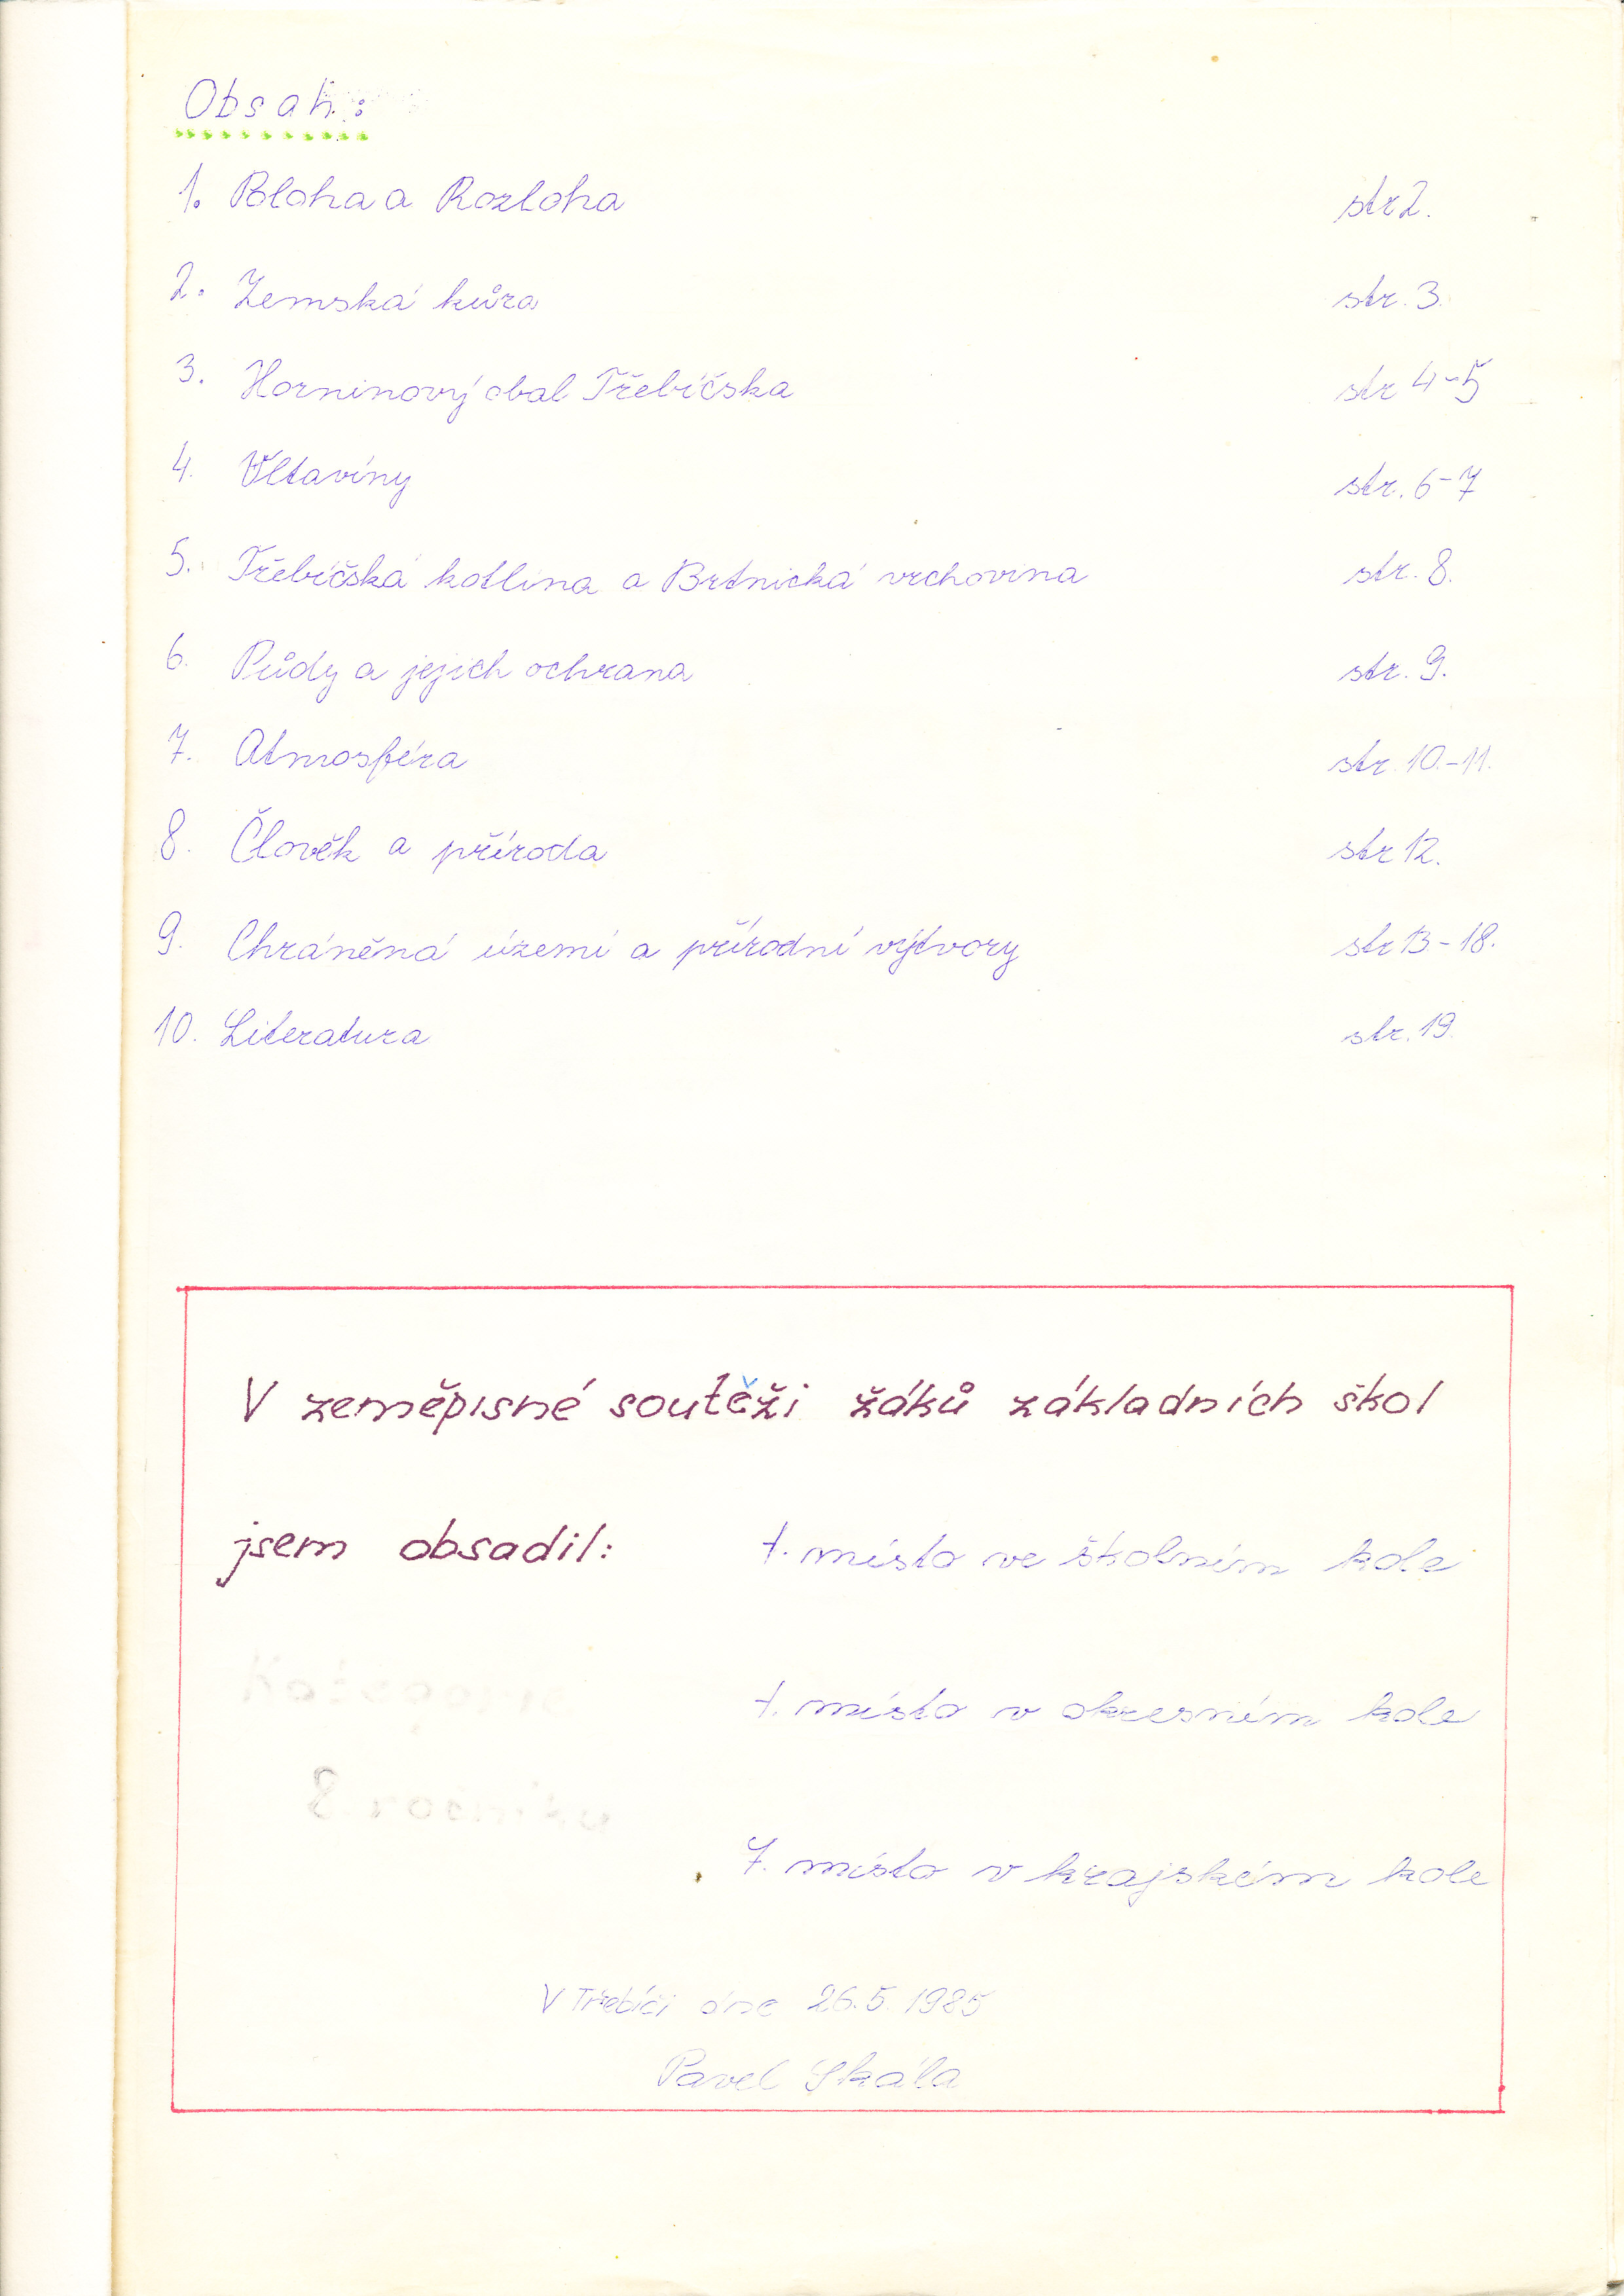 Obsah:
1. Poloha a Rozloha str 2.
2. Zemská kůra str. 3.
3. Horninový obal Třebíčska str 4-5
4. Vltavíny str. 6-7
5. Třebíčská kotlina a Brtnická vrchovina str. 8.
6. Půdy a jejich ochrana str. 9.
7. Atmosféra str. 10.-11.
8. Člověk a příroda str 12.
9. Chráněná území a přírodní výtvory str 13-18.
10. Literatura str. 19.
V zeměpisné soutěži žáků základních škol
jsem obsadil: 1. místo ve školním kole
1. místo v okresním kole
7. místo v krajském kole
V Třebíči dne 26.5.1985
Pavel Skála